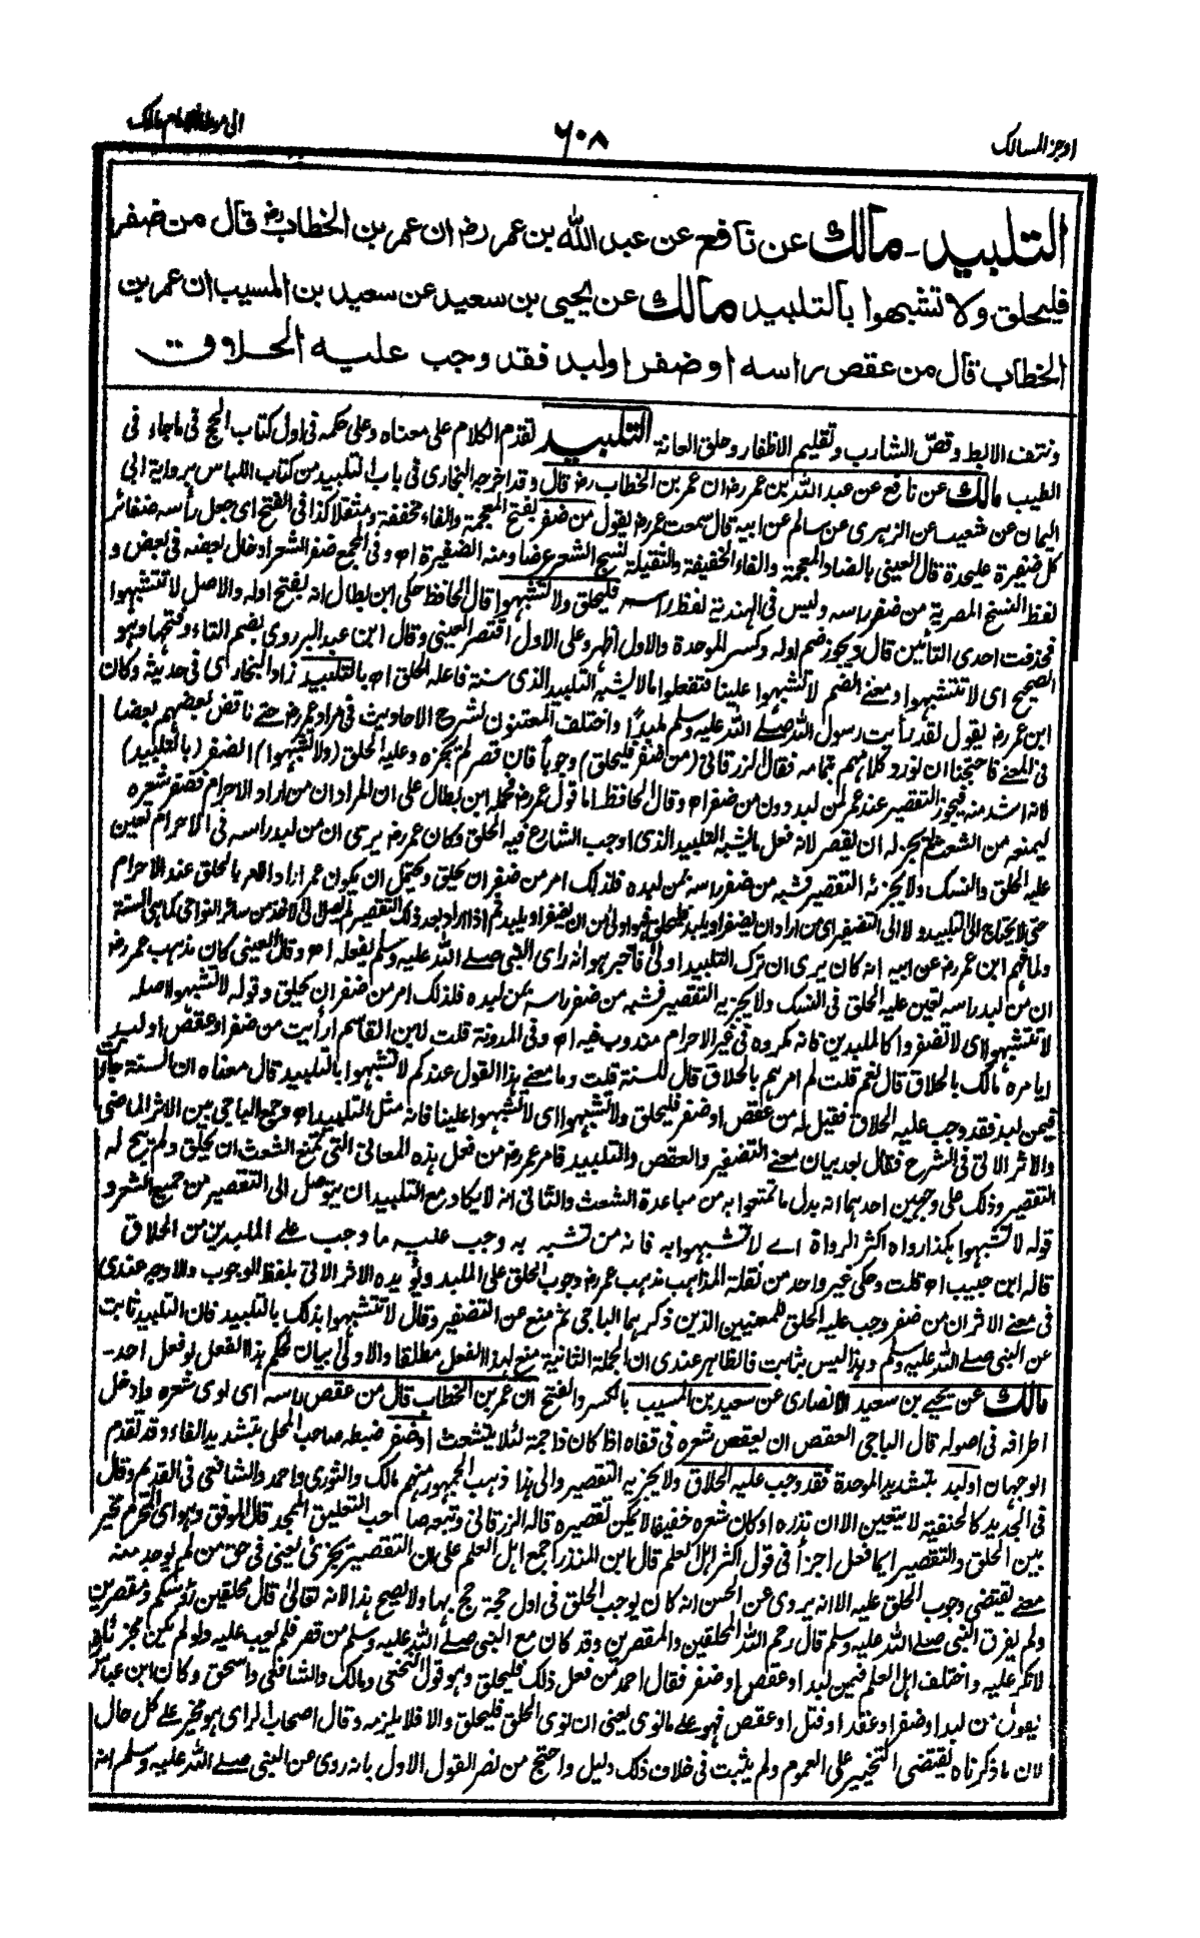 اوجز المسالك
٦٠٨
الى موطا الامام مالك
التلبيد - مالك عن نافع عن عبد الله بن عمر رضـ ان عمر بن الخطاب رضـ قال من ضفر
فليحلق ولا تشبهوا بالتلبيد مالك عن يحيى بن سعيد عن سعيد بن المسيب ان عمر بن
الخطاب قال من عقص راسه او ضفر او لبد فقد وجب عليه الحلاق
ونتف الابط وقص الشارب وتقليم الاظفار وحلق العانة التلبيد تقدم الكلام على معناه وعلى حكمه فى اول كتاب الحج فى ماجاء فى
الطيب مالك عن نافع عن عبد الله بن عمر رضـ ان عمر بن الخطاب رضـ قال وقد اخرجه البخارى فى باب التلبيد من كتاب اللباس برواية ابى
اليمان عن شعيب عن الزهرى عن سالم عن ابيه قال سمعت عمر رضـ يقول من ضفر بفتح المعجمة والفاء مخففة ومثقلا كذا فى الفتح اى جعل رأسه ضفائر
كل ضفيرة عليحدة قال العينى بالضاد المعجمة والفاء الخفيفة والثقيلة نسج الشعر عرضا ومنه الضفيرة اه وفى المجمع ضفر الشعر ادخال بعضه فى بعض و
لفظ النسخ المصرية من ضفر راسه وليس فى الهندية لفظ راسه فليحلق ولا تشبهوا قال الحافظ حكى ابن بطال انه بفتح اوله والاصل لا تتشبهوا
فحذفت احدى التائين قال ويجوز ضم اوله وكسر الموحدة والاول اظهر وعلى الاول اقتصر العينى وقال ابن عبد البر روى بضم التاء وفتحها وهو
الصحيح اى لا تتشبهوا ومعنى الضم لا تشبهوا علينا فتفعلوا مالا يشبه التلبيد الذى سنة فاعله الحلق اه بالتلبيد زاد البخارى فى حديثه وكان
ابن عمر رضـ يقول لقد رأيت رسول الله صلے الله عليه وسلم ملبدا واختلف المعتنون لشرح الاحاديث فى مراد عمر رضـ حتے ناقض بعضهم بعضا
فى المعنے فاحتجنا ان نورد كلامهم بتمامه فقال الزرقانى (من ضفر فليحلق) وجوبا فان قصر لم يجزه وعليه الحلق (ولا تشبهوا) الضفر (بالتلبيد)
لانه اشد منه فيجوز التقصير عند عمر لمن لبد دون من ضفر اه وقال الحافظ اما قول عمر رضـ فحمله ابن بطال على ان المراد ان من اراد الاحرام فضفر شعره
ليمنعه من الشعث لم يجز له ان يقصر لانه فعل مايشبه التلبيد الذى اوجب الشارع فيه الحلق وكان عمر رضـ يرى ان من لبد راسه فى الاحرام تعين
عليه الحلق والنسك ولا يجزئه التقصير فشبه من ضفر راسه بمن لبده فلذلك امر من ضفر ان يحلق ويحتمل ان يكون عمر اراد الامر بالحلق عند الاحرام
حتى لا يحتاج الى التلبيد ولا الى التضفير اى من اراد ان يضفر او يلبد فليحلق فهو اولى من ان يضفر او يلبد ثم اذا اراد بعد ذلك التقصير لم يصل الى الاخذ من سائر النواحى كما هى السنة
ولما فهم ابن عمر رضـ عن ابيه انه كان يرى ان ترك التلبيد اولى فاخبر هو انه راى النبى صلے الله عليه وسلم يفعله اه وقال العينى كان مذهب عمر رضـ
ان من لبد راسه تعين عليه الحلق فى النسك ولا يجزيه التقصير فشبه من ضفر راسه بمن لبده فلذلك امر من ضفر ان يحلق وقوله لا تشبهوا اصله
لا تتشبهوا اى لا تضفروا كالملبدين فانه مكروه فى غير الاحرام مندوب فيه اه وفى المدونة قلت لابن القاسم ارأيت من ضفر او عقص او لبد
ايامره مالك بالحلاق قال نعم قلت لم امرهم بالحلاق قال للسنة قلت وما معنے هذا القول عندكم لا تشبهوا بالتلبيد قال معناه ان السنة جاءت
فيمن لبد فقد وجب عليه الحلاق فقيل له من عقص او ضفر فليحلق ولا تشبهوا اى لا تشبهوا علينا فانه مثل التلبيد اه وجمع الباجى بين الاثر الماضى
والاثر الاتى فى الشرح فقال بعد بيان معنے التضفير والعقص والتلبيد فامر عمر رضـ من فعل هذه المعانى التى تمنع الشعث ان يحلق ولم يبح له
التقصير وذلك على وجهين احدهما انه بدل ما تمتعوا به من مباعدة الشعث والثانى انه لا يكاد مع التلبيد ان يتوصل الى التقصير من جميع الشعر و
قوله لا تشبهوا هكذا رواه اكثر الرواة اے لا تشبهوا به فانه من تشبه به وجب عليه ما وجب علے الملبدين من الحلاق
قاله ابن حبيب اه قلت وحكى غير واحد من نقلة المذاهب مذهب عمر رضـ وجوب الحلق على الملبد ويؤيده الاثر الاتى بلفظ الوجوب والاوجه عندى
فى معنے الاثر ان من ضفر وجب عليه الحلق للمعنيين الذين ذكرهما الباجى ثم منع عن التضفير وقال لا تتشبهوا بذلك بالتلبيد فان التلبيد ثابت
عن النبى صلے الله عليه وسلم وهذا ليس بثابت فالظاهر عندى ان الجملة الثانية منع لهذا الفعل مطلقا والاولى بيان لحكم هذا الفعل لو فعل احد -
مالك عن يحيے بن سعيد الانصارى عن سعيد بن المسيب بالكسر والفتح ان عمر بن الخطاب قال من عقص راسه اى لوى شعره وادخل
اطرافه فى اصوله قال الباجى العقص ان يعقص شعره فى قفاه اذا كان ذا جمة لئلا يتشعث او ضفر ضبطه صاحب المحلى بتشديد الفاء وقد تقدم
الوجهان او لبد بتشديد الموحدة فقد وجب عليه الحلاق ولا يجزيه التقصير والى هذا ذهب الجمهور منهم مالك والثورى واحمد والشافعى فى القديم وقال
فى الجديد كالحنفية لا يتعين الا ان نذره او كان شعره خفيفا لا يمكن تقصيره قاله الزرقانى وتبعه صاحب التعليق الممجد قال الموفق وهو اى المحرم مخير
بين الحلق والتقصير ايما فعل اجزأ فى قول اكثر اهل العلم قال ابن المنذر اجمع اهل العلم على ان التقصير يجزئ يعنى فى حق من لم يوجد منه
معنے يقتضى وجوب الحلق عليه الا انه يروى عن الحسن انه كان يوجب الحلق فى اول حجة حج بها ولا يصح هذا لانه تعالى قال محلقين رؤسكم ومقصرين
ولم يفرق النبى صلے الله عليه وسلم قال رحم الله المحلقين والمقصرين وقد كان مع النبى صلے الله عليه وسلم من قصر فلم يعب عليه ولو لم يكن مجزئا
لانكر عليه واختلف اهل العلم فيمن لبد او عقص او ضفر فقال احمد من فعل ذلك فليحلق وهو قول النخعى ومالك والشافعى واسحق وكان ابن عباس
يقول من لبد او ضفر او عقد او فتل او عقص فهو على مانوى يعنى ان نوى الحلق فليحلق والا فلا يلزمه وقال اصحاب الراى هو مخير على كل حال
لان ما ذكرناه يقتضى التخيير على العموم ولم يثبت فى خلاف ذلك دليل واحتج من نصر القول الاول بانه روى عن النبى صلے الله عليه وسلم انه